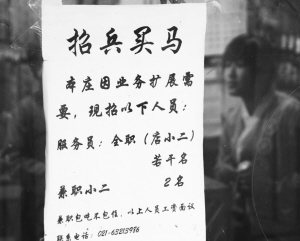 招兵买马
本庄因业务扩展需
要，现招以下人员：
服务员：全职（店小二）
若干名
兼职小二 2名
兼职包吃不包住，以上人员工资面议
联系电话：021-63213996